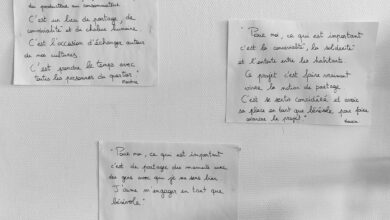 du producteur au consommateur
C'est un lieu de partage, de
convivialité et de chaleur humaine
C'est l'occasion d'échanger autour
de nos cultures.
C'est prendre le temps avec
toutes les personnes du quartier
"Pour moi, ce qui est important
c'est la convivialité, la solidarité
et l'entente entre les habitants.
Ce projet c'est faire vraiment
vivre la notion de partage.
C'est se sentir considéré et avoir
sa place en tant que bénévole, pour faire
avancer le projet"
"Pour moi, ce qui est important
c'est de partager des moments avec
des gens avec qui je me sens bien.
J'aime m'engager en tant que
bénévole"